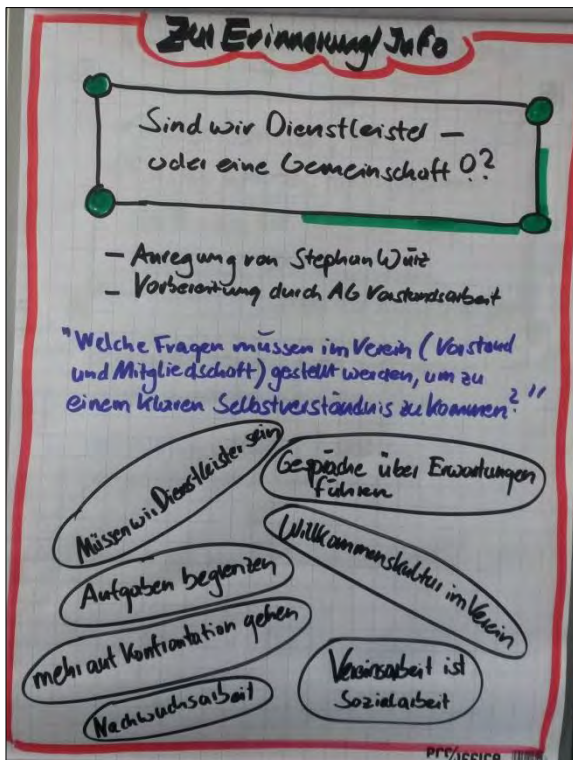 Zur Erinnerung/Info
Sind wir Dienstleister –
oder eine Gemeinschaft ??
– Anregung von Stephan Würz
– Vorbereitung durch AG Vorstandsarbeit
"Welche Fragen müssen im Verein (Vorstand
und Mitgliedschaft) gestellt werden, um zu
einem klaren Selbstverständnis zu kommen?"
Müssen wir Dienstleister sein
Gespräche über Erwartungen
führen
Willkommenskultur im Verein
Aufgaben begrenzen
mehr auf Konfrontation gehen
Vereinsarbeit ist
Sozialarbeit
Nachwuchsarbeit